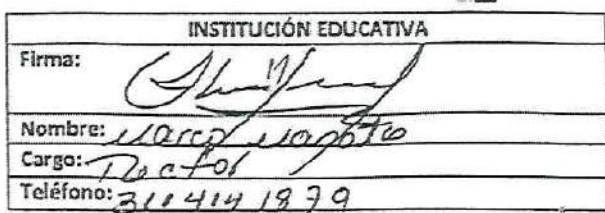 INSTITUCIÓN EDUCATIVA
Firma:
Nombre: Marco
Cargo: Rector
Teléfono: 310 414 1879